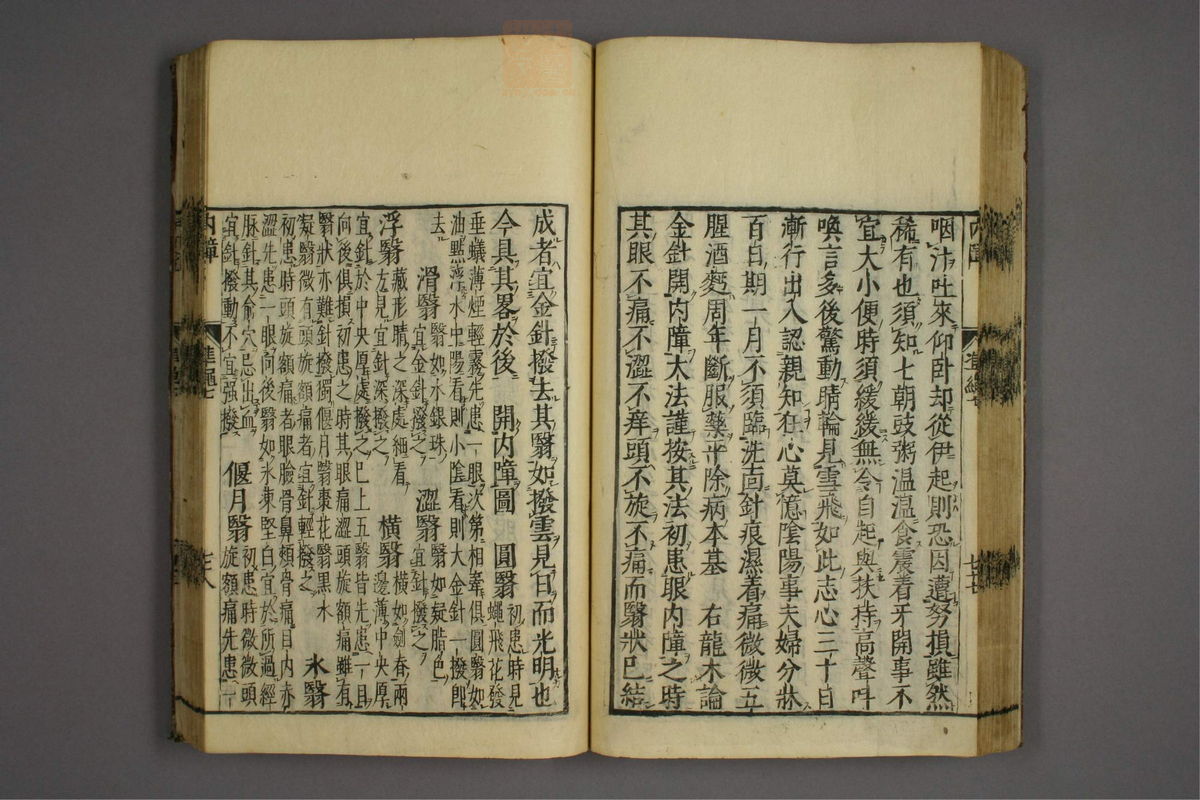 咽汁吐來仰臥却從伊起則恐因遭努損雖然
稀有也須知七朝豉粥温温食震着牙開事不
宜大小便時須緩緩無令自起與扶持高聲呌
喚言多後驚動睛輪見雪飛如此志心三十日
漸行出入認親知在心莫憶陰陽事夫婦分牀
百日期一月不須臨洗靣針痕濕着痛微微五
腥酒麪周年斷服藥平除病本基　右龍木論
金針開內障大法謹按其法初患眼內障之時
其眼不痛不澀不痒頭不旋不痛而翳狀已結
成者宜金針撥去其翳如撥雲見日而光明也
今具其畧於後　開內障圖　圓翳初患時見蠅飛花發
垂蟻薄煙輕霧先患一眼次第相牽俱圓翳如
油點浮水中陽看則小陰看則大金針一撥卽
去　滑翳翳如水銀珠宜金針撥之　澀翳翳如凝脂色宜針撥之
浮翳藏形睛之深處細看方見宜針深撥之　橫翳橫如劍脊兩邊薄中央厚
宜針於中央厚處撥之已上五翳皆先患一目
向後俱損初患之時其眼痛澀頭旋額痛雖有
翳狀亦難針撥獨偃月翳棗花翳黑水
凝翳微有頭旋額痛者宜針輕撥之　氷翳
初患時頭旋額痛者眼瞼骨鼻頰骨痛目內赤
澀先患一眼向後翳如氷凍堅白宜於所過經
脉針其俞穴忌出血
宜針撥動不宜强撥　偃月翳初患時微微頭旋額痛先患一
內障
準繩七
七十八